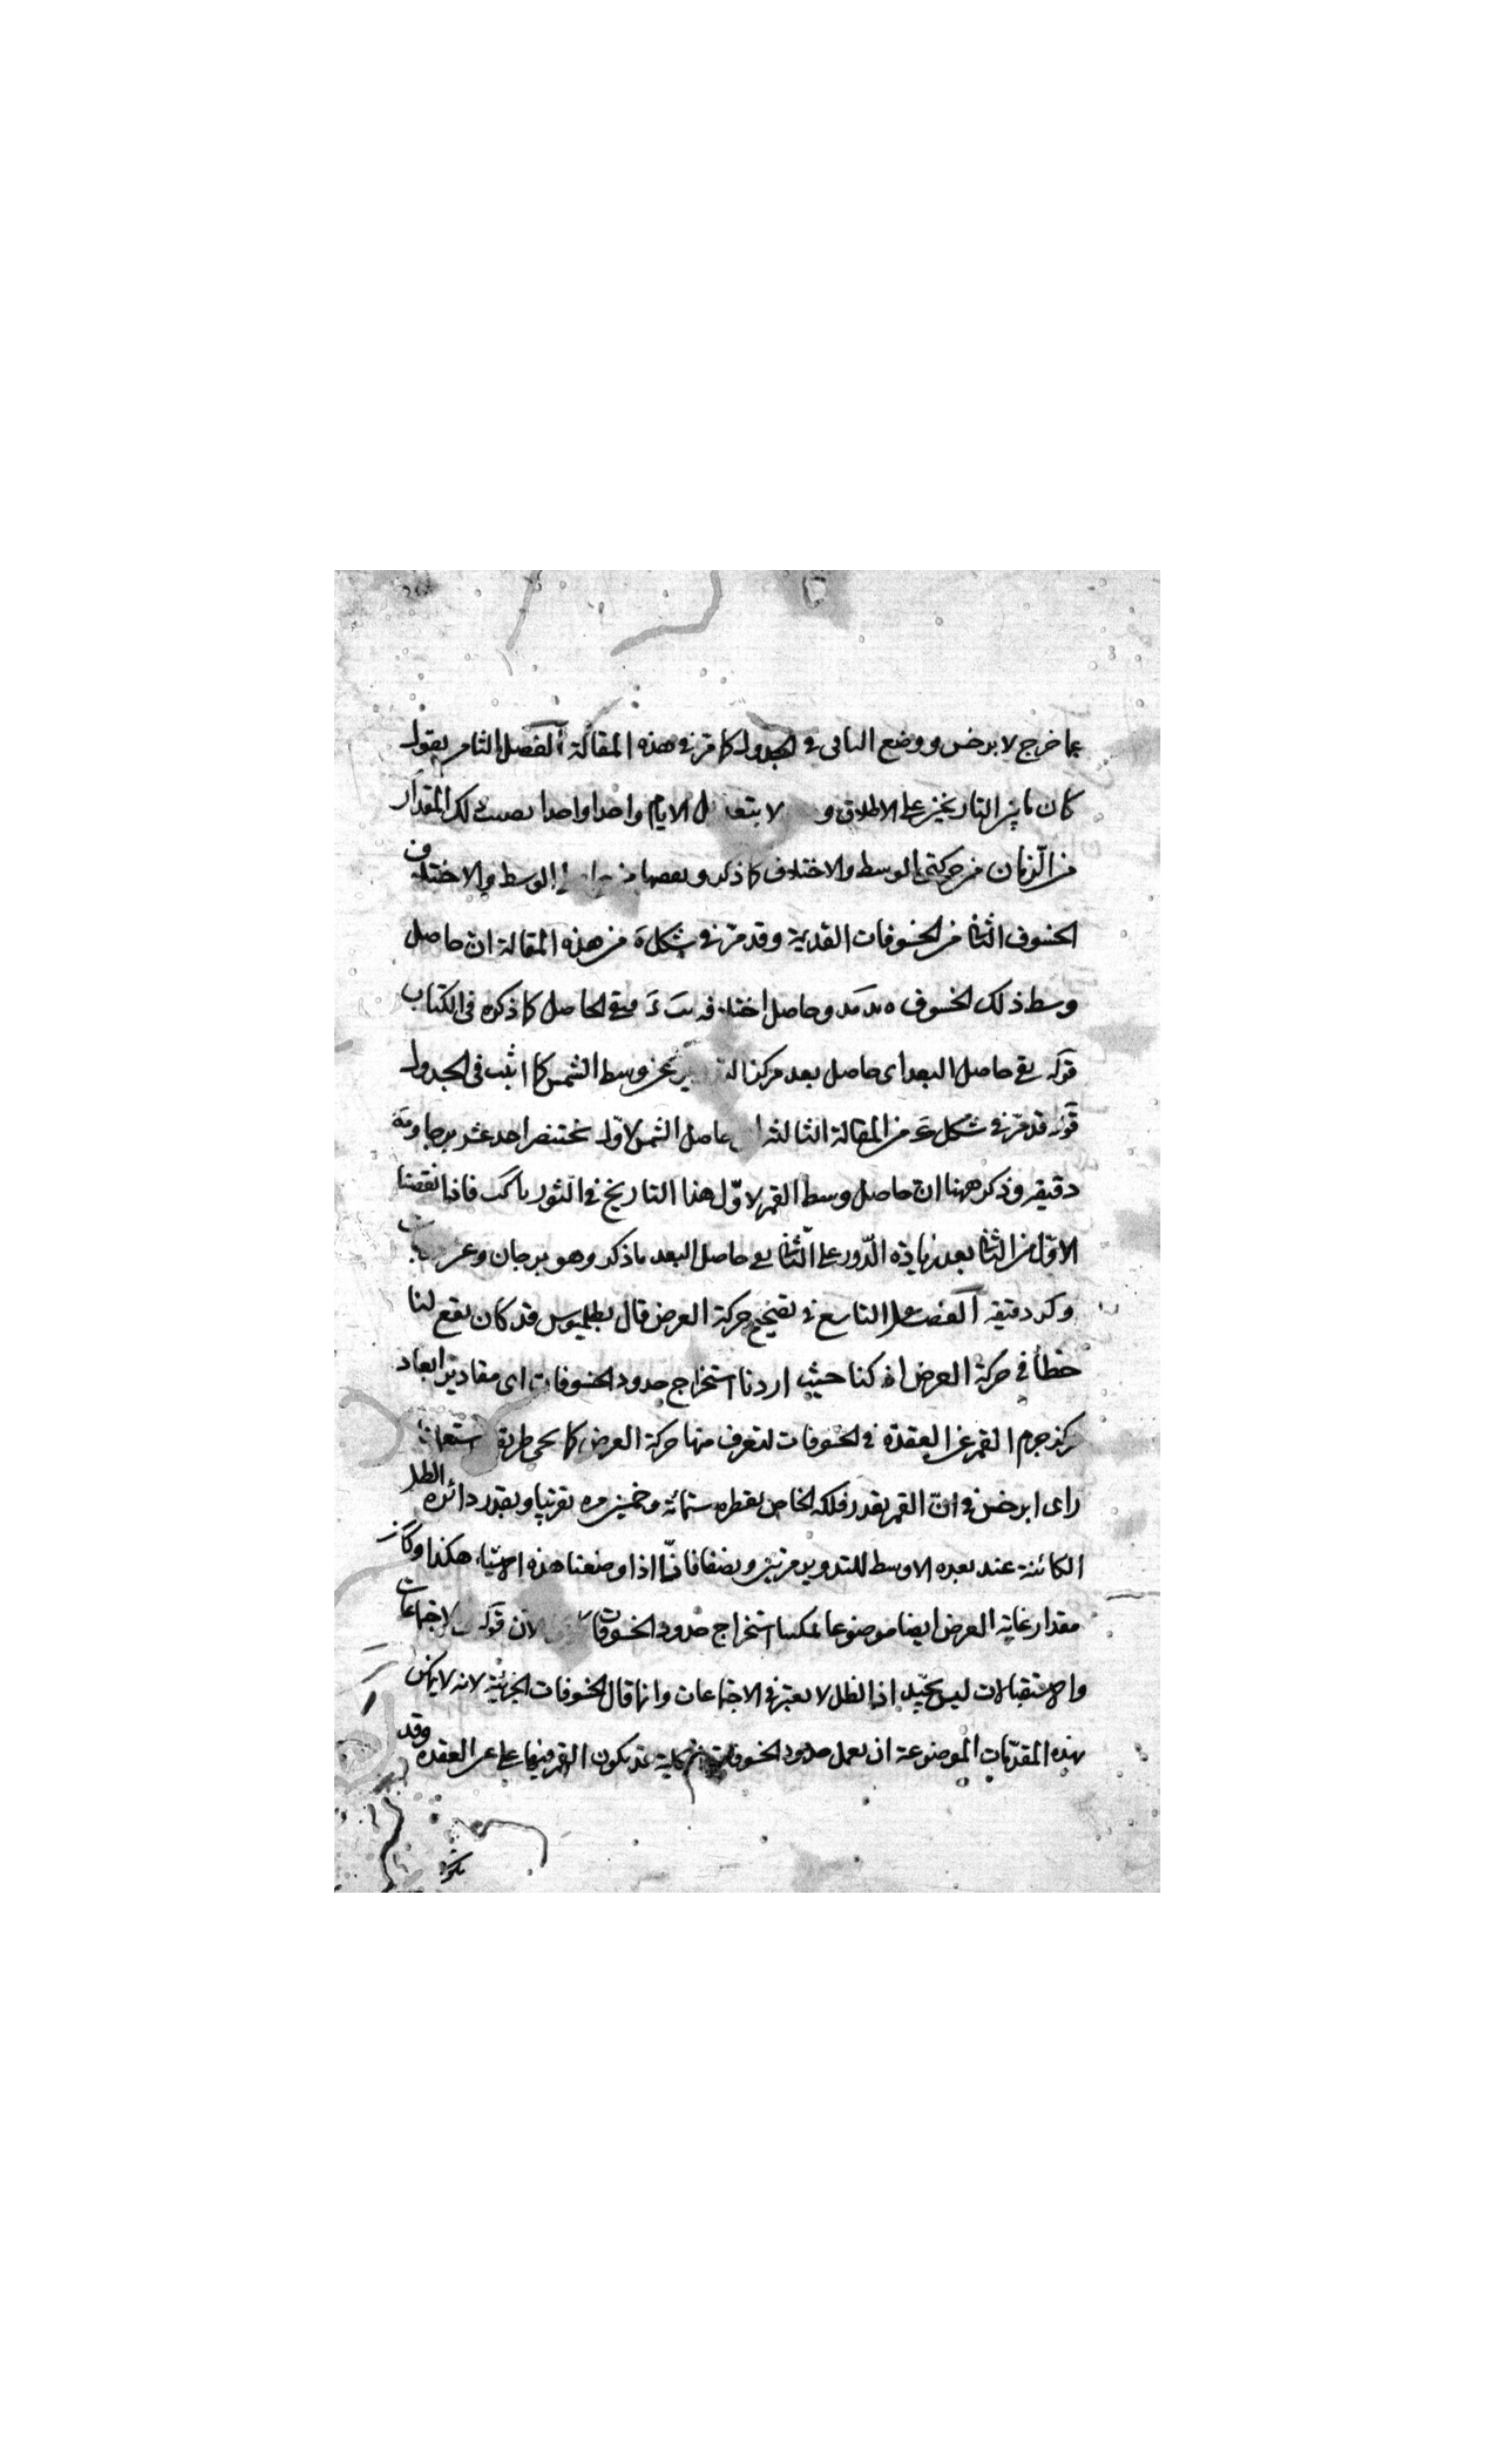 عما خرج لابرخس ووضع الباقى فى الجدول كما مر فى هذه المقالة الفصل الثامن بقوله
كان ما بين التاريخين على الاطلاق و لا بتعا الايام واحدا واحدا ذلك المقدار
من الزمان من حركتى الوسط والاختلاف كما ذكر و الوسط والاختلاف
الخسوف الثانى من الخسوفات القديمة وقد مر فى شكل ه من هذه المقالة ان حاصل
وسط ذلك الخسوف وحاصل اختلافه بقى الحاصل كما ذكره فى الكتاب
قوله بقى حاصل البعد اى حاصل بعد مركز عن وسط الشمس كما اثبت فى الجدول
قوله قد مر فى شكل من المقالة الثالثة ان حاصل الشمس لاول بختنصر احد عشر برجا ومه
دقيقه وذكر ههنا ان حاصل وسط القمر لاول هذا التاريخ فى الثور يا كب فاذا نقصنا
الاول من الثانى بعد زيادة الدور على الثانى بقى حاصل البعد ما ذكر وهو برجان وعشر
دقيقه الفصل التاسع فى تصحيح حركة العرض قال بطلميوس قد كان يقع لنا
خطأ فى حركة العرض اذ كنا حيث اردنا استخراج حدود الخسوفات اى مقادير ابعاد
مركز جرم القمر عن العقدة فى الخسوفات لنعرف منها حركة العرض كما يجى طريق استعمال
راى ابرخس فى ان القمر يقدر فلكه الخاص بقطره ستمائة وخمسين مره تقريبا ويقدر دائره الظل
الكائنة عند بعده الاوسط للتدوير مرتين ونصفا فانا اذا وضعنا هذه الاشياء هكذا وكان
مقدار غاية العرض ايضا موضوعا لمكننا استخراج حدود الخسوفات الان قوله الاجتماعات
والاستقبالات ليس بجيد اذ الظل لا يعتبر فى الاجتماعات وانما قال الخسوفات الجزئية لانه لا يمكن
بهذه المقدمات الموضوعة ان يعمل حدود الخسوفات كلية قد يكون القمر فيها على عين العقده وقد